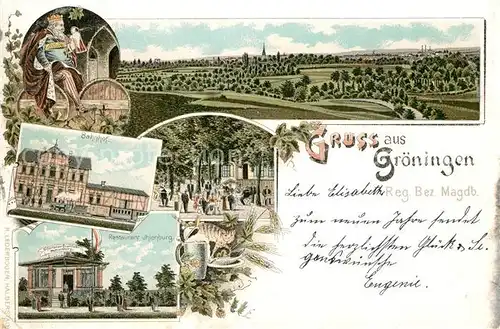 Gruss aus
Gröningen
Reg. Bez. Magdb.
Bahnhof.
Restaurant Uhlenburg.
Liebe Elisabeth
zum neuen Jahre sendet
die herzlichsten Glück- & Se-
genswünsche
Eugenie.